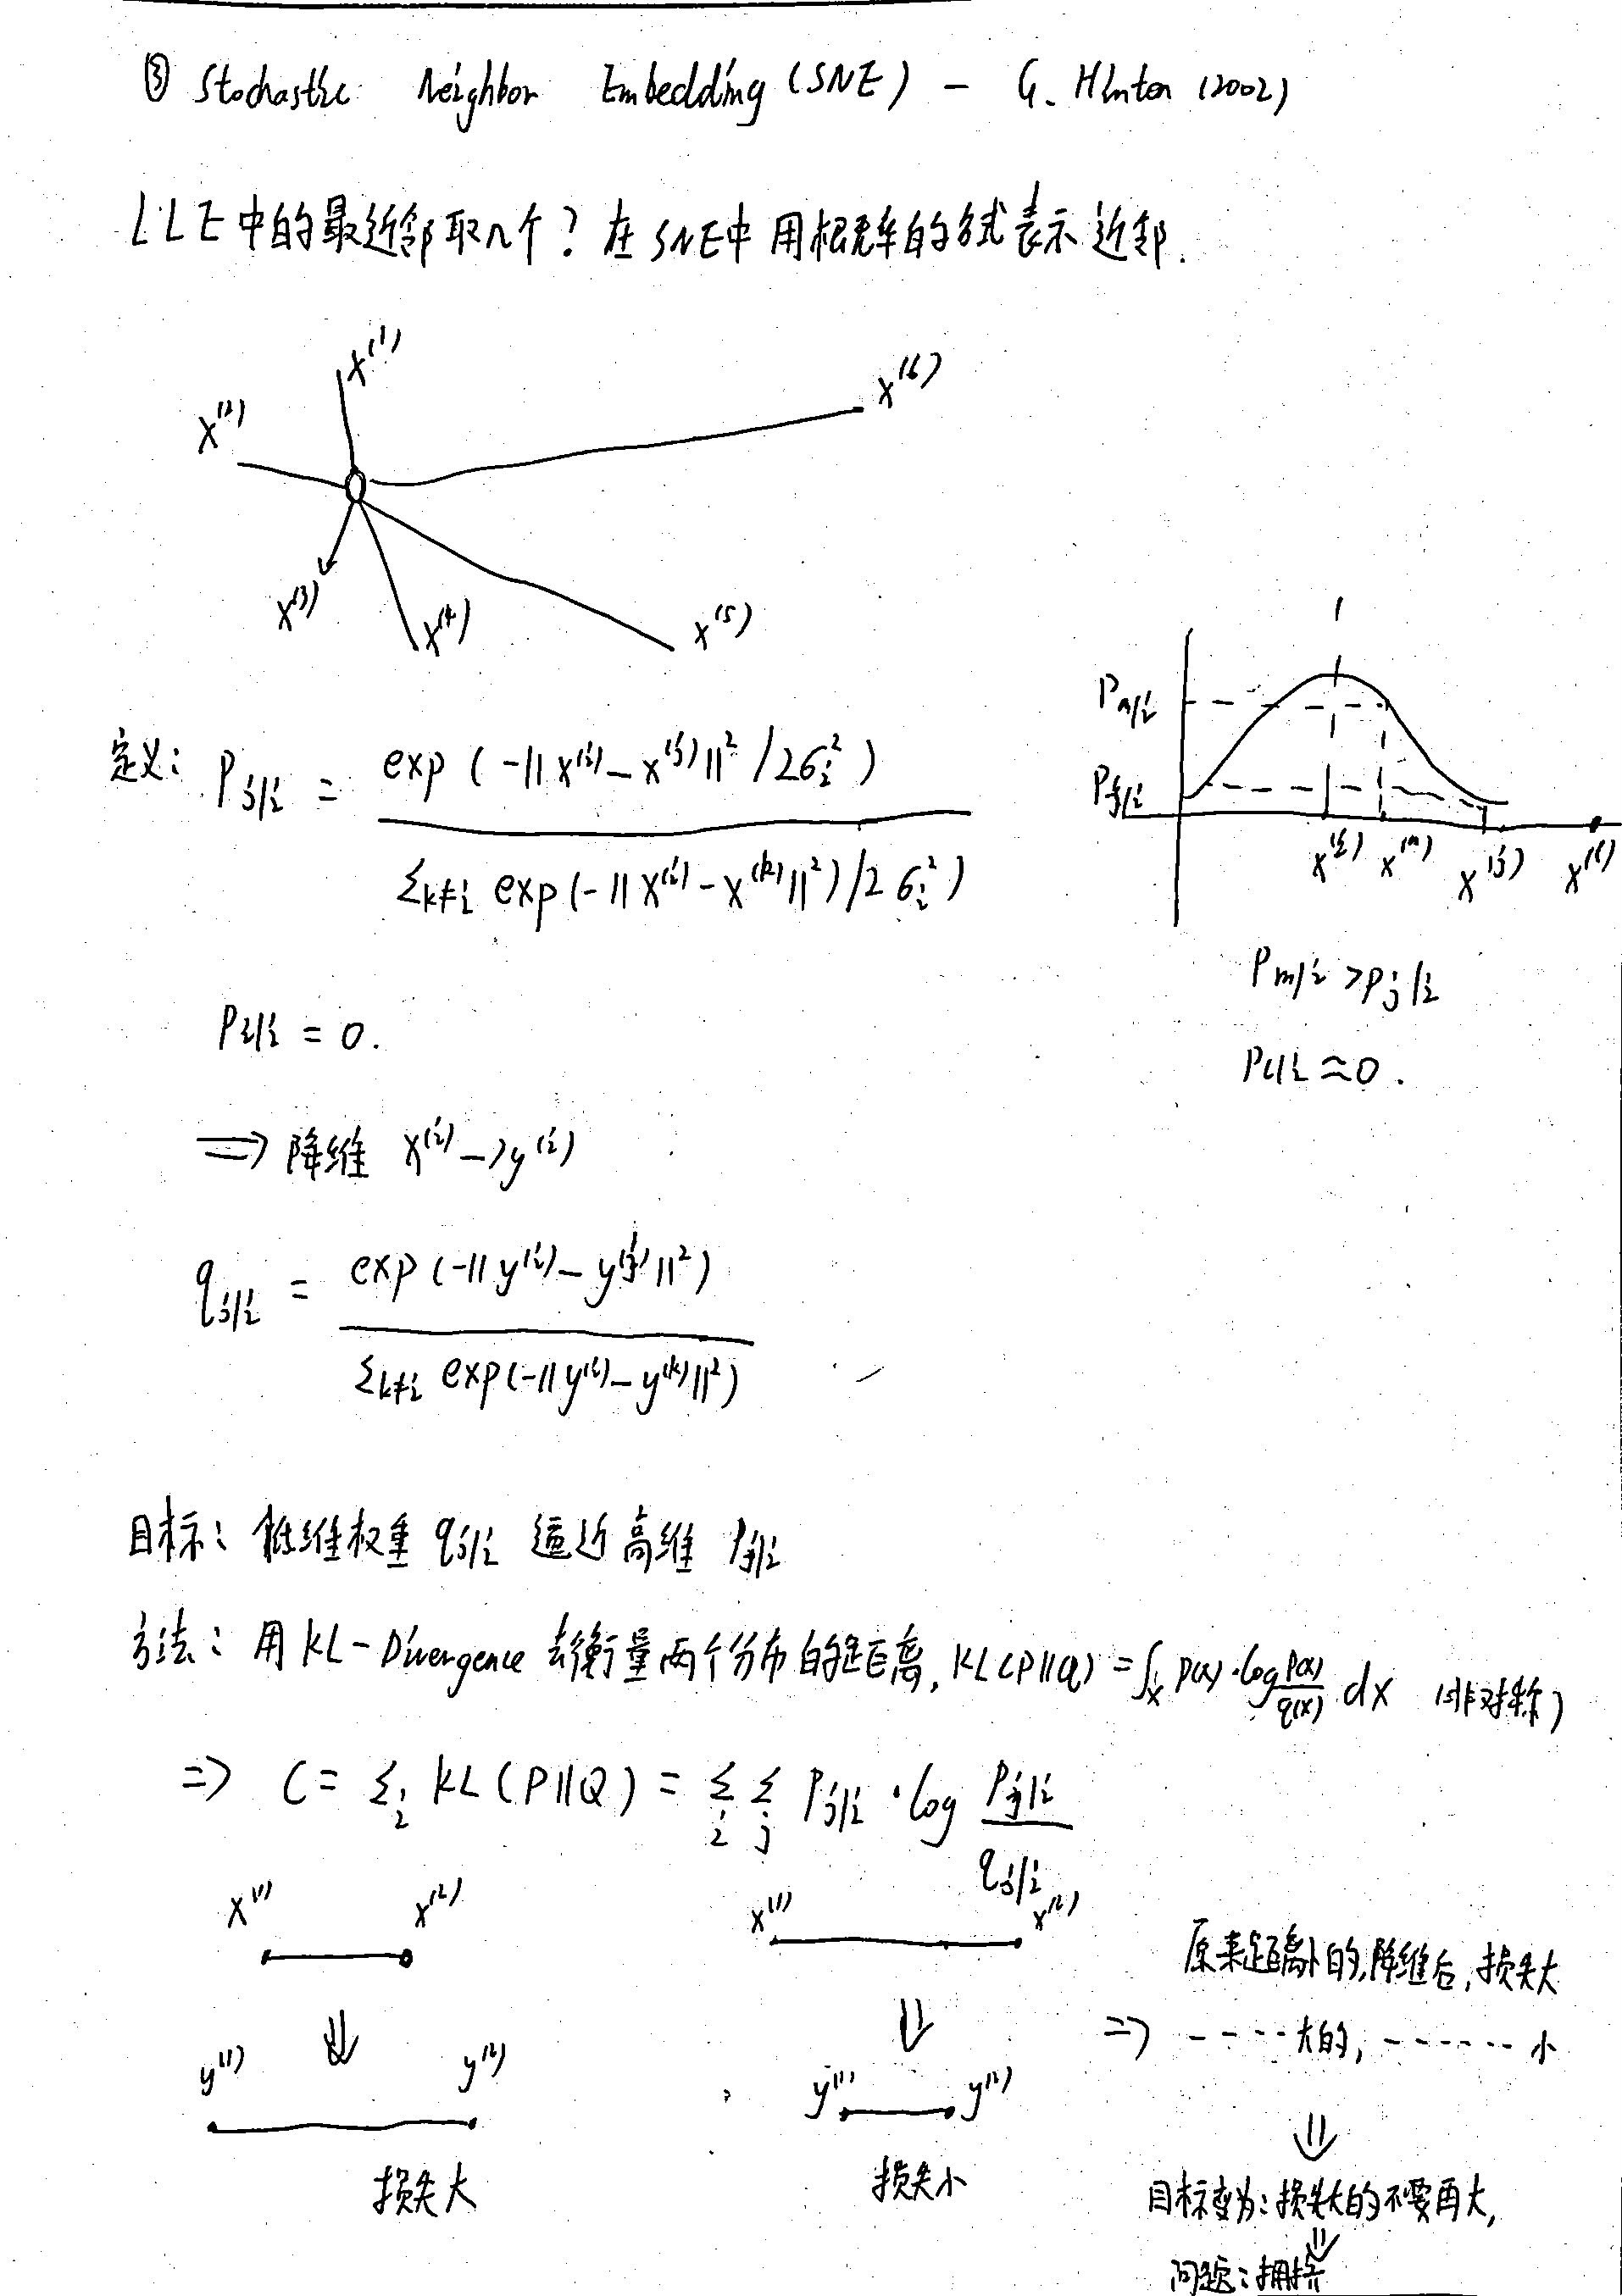 ③ Stochastic Neighbor Embedding (SNE) - G. Hinton (2002)
LLE中的最近邻取几个? 在SNE中用概率的方式表示近邻.
x^(1)
x^(2)
x^(6)
x^(3)
x^(4)
x^(5)
定义: P_{j|i} = exp(-||x^(i) - x^(j)||² / 2σ_i²) / Σ_{k≠i} exp(-||x^(i) - x^(k)||²)/2σ_i²)
P_{m|i}
P_{j|i}
x^(i) x^(m) x^(j) x^(l)
P_{m|i} > P_{j|i}
P_{l|i} ≈ 0.
P_{i|i} = 0.
⇒ 降维 x^(i) → y^(i)
q_{j|i} = exp(-||y^(i) - y^(j)||²) / Σ_{k≠i} exp(-||y^(i) - y^(k)||²)
目标: 低维权重 q_{j|i} 逼近高维 P_{j|i}
方法: 用KL-Divergence去衡量两个分布的距离, KL(P||Q) = ∫_x p(x)·log p(x)/q(x) dx (非对称)
⇒ C = Σ_i KL(P||Q) = Σ_i Σ_j P_{j|i} · log P_{j|i} / q_{j|i}
x^(1) x^(2)
y^(1) ⇓ y^(2)
损失大
x^(1) x^(2)
⇓
y^(1) y^(2)
损失小
原来距离小的,降维后,损失大
⇒ ----大的, ------- 小
⇓
目标变为: 损失大的不要再大,
⇓
问题: 拥挤